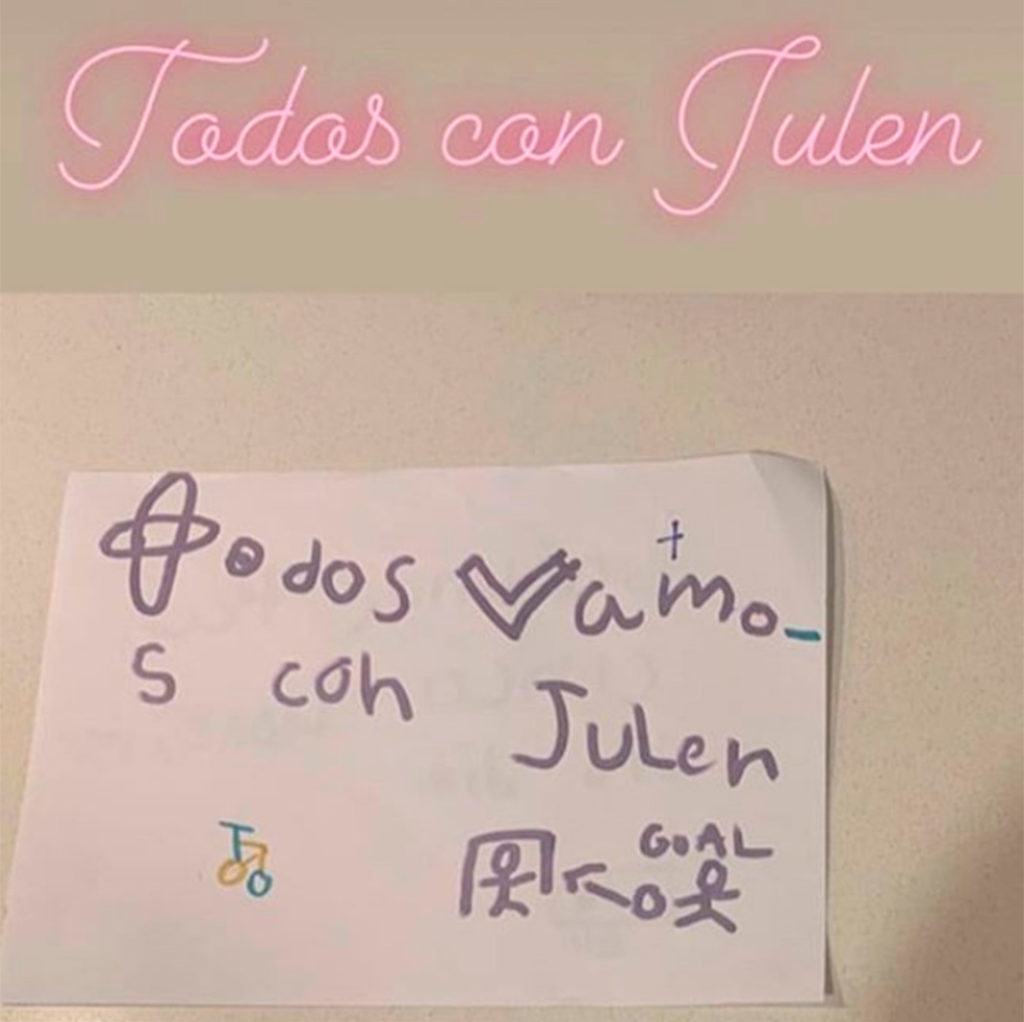 Todos con Julen
todos Vamo-
s con
Julen
GOAL